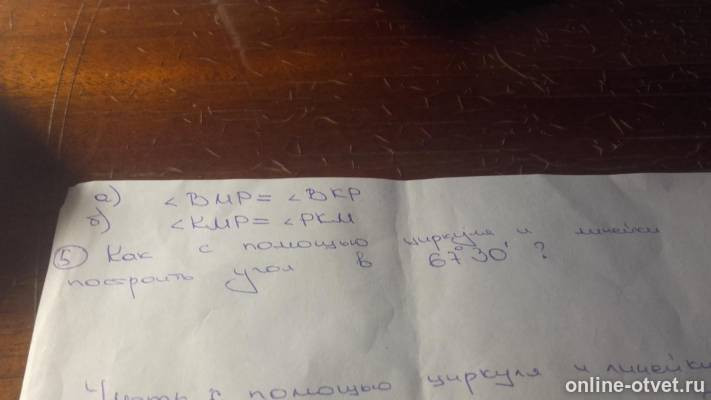 а) <ВМР = <ВКР
б) <КМР = <РКМ
5 Как с помощью циркуля и линейки
построить угол в 67°30' ?
с помощью циркуля и линейки
online-otvet.ru